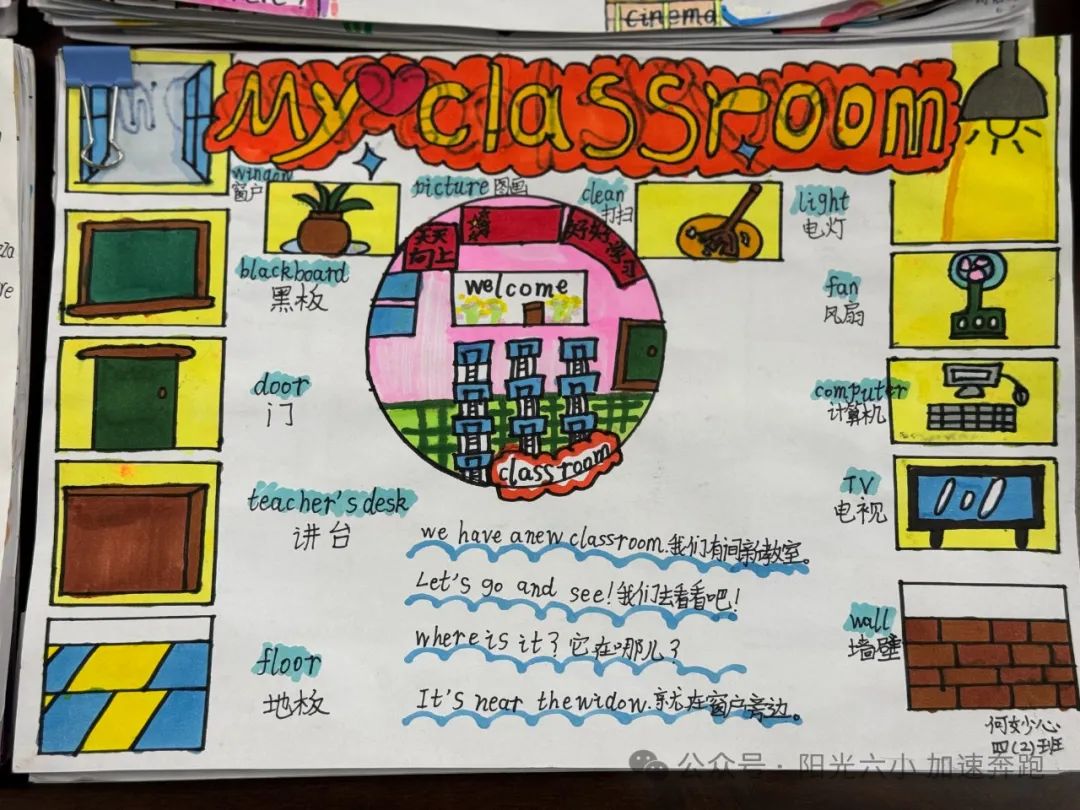 cinema
My classroom
window
窗户
picture 图画
clean
打扫
light
电灯
blackboard
黑板
天天
向上
好好学习
welcome
fan
风扇
door
门
computer
计算机
classroom
teacher's desk
讲台
TV
电视
we have a new classroom.我们有间新教室。
Let's go and see!我们去看看吧!
where is it?它在哪儿?
It's near the widow.就在窗户旁边。
floor
地板
wall
墙壁
何妙心
四(2)班
公众号·阳光六小 加速奔跑